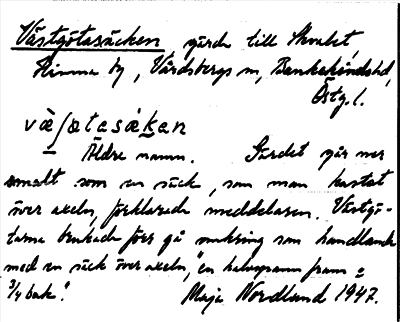 Västgötasäcken gärde till Skvalet,
Himna by, Vårdsbergs sn, Bankekindshd,
Östg. l.
vä̀ʃøtasäken
Äldre namn. Gärdet går ner
smalt som en säck, som man kastat
över axeln, förklarade meddelaren. Västgö-
tarna brukade förr gå omkring som handlande
med en säck över axeln, "en halvspann fram o
3/4 bak".
Maja Nordlund 1947.